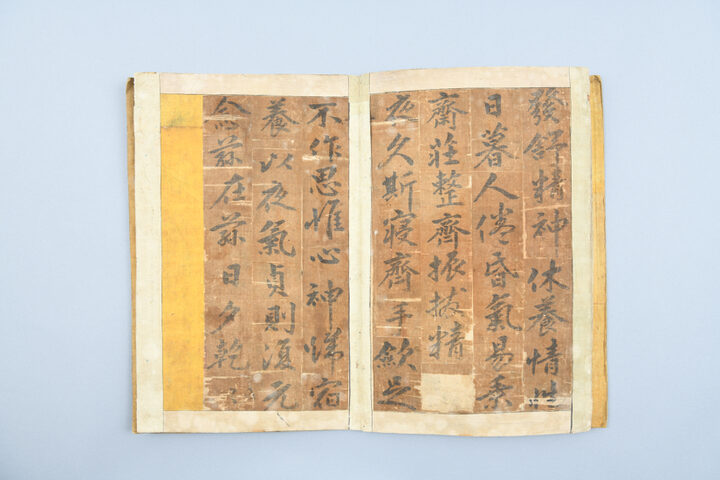 發舒精神休養情性
日暮人倦昏氣易乘
齋莊整齊振拔精
夜久斯寢齊手斂足
不作思惟心神歸宿
養以夜氣貞則復元
念茲在茲日夕乾